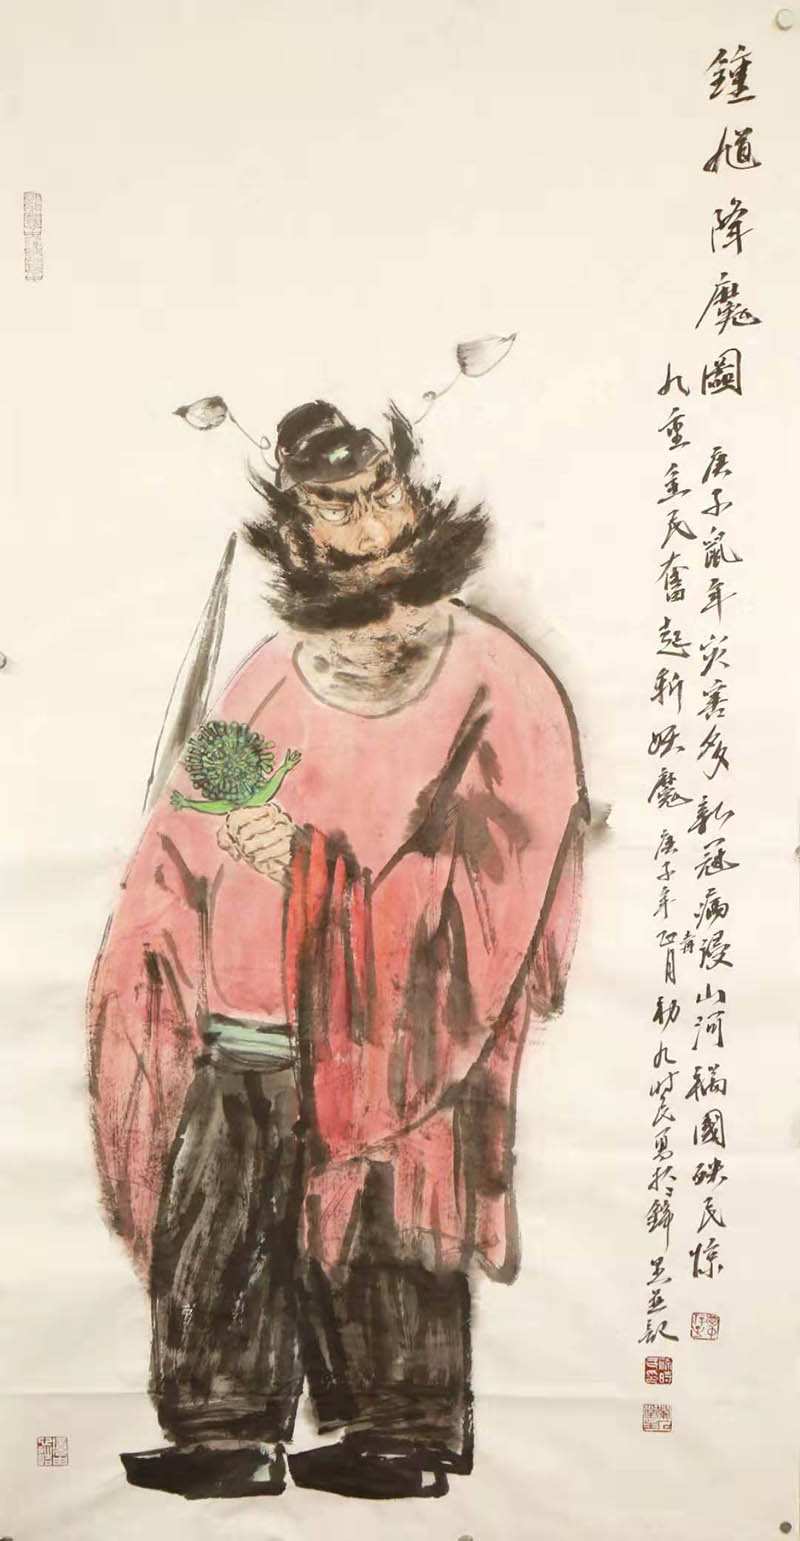 鍾馗降魔圖 庚子鼠年灾害多新冠病毒浸山河禍國殃民惊
九重全民奮起斬妖魔 庚子年正月初九時民並記